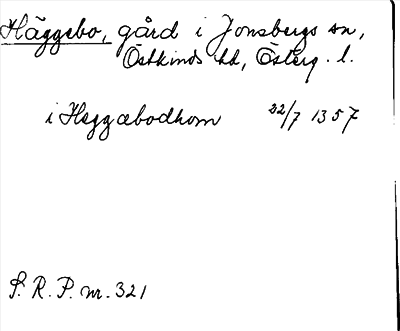 Häggebo, gård i Jonsbergs sn,
Östkinds hd, Österg. l.
i Heggæbodhom 22/7 1357
S. R. P. nr. 321